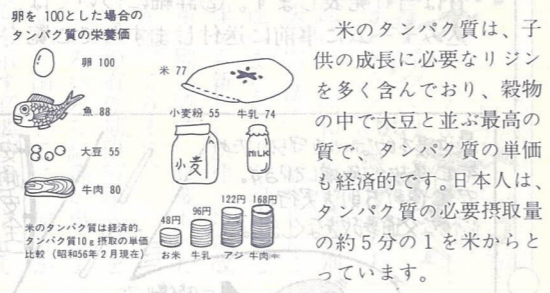 卵を 100とした場合の
タンパク質の栄養価
卵 100
米 77
魚 88
小麦粉 55
牛乳 74
大豆 55
小麦
MILK
牛肉 80
米のタンパク質は経済的
タンパク質10g摂取の単価
比較（昭和56年2月現在）
48円
96円
122円
168円
お米
牛乳
アジ
牛肉㊥
米のタンパク質は、子
供の成長に必要なリジン
を多く含んでおり、穀物
の中で大豆と並ぶ最高の
質で、タンパク質の単価
も経済的です。日本人は、
タンパク質の必要摂取量
の約5分の1を米からと
っています。